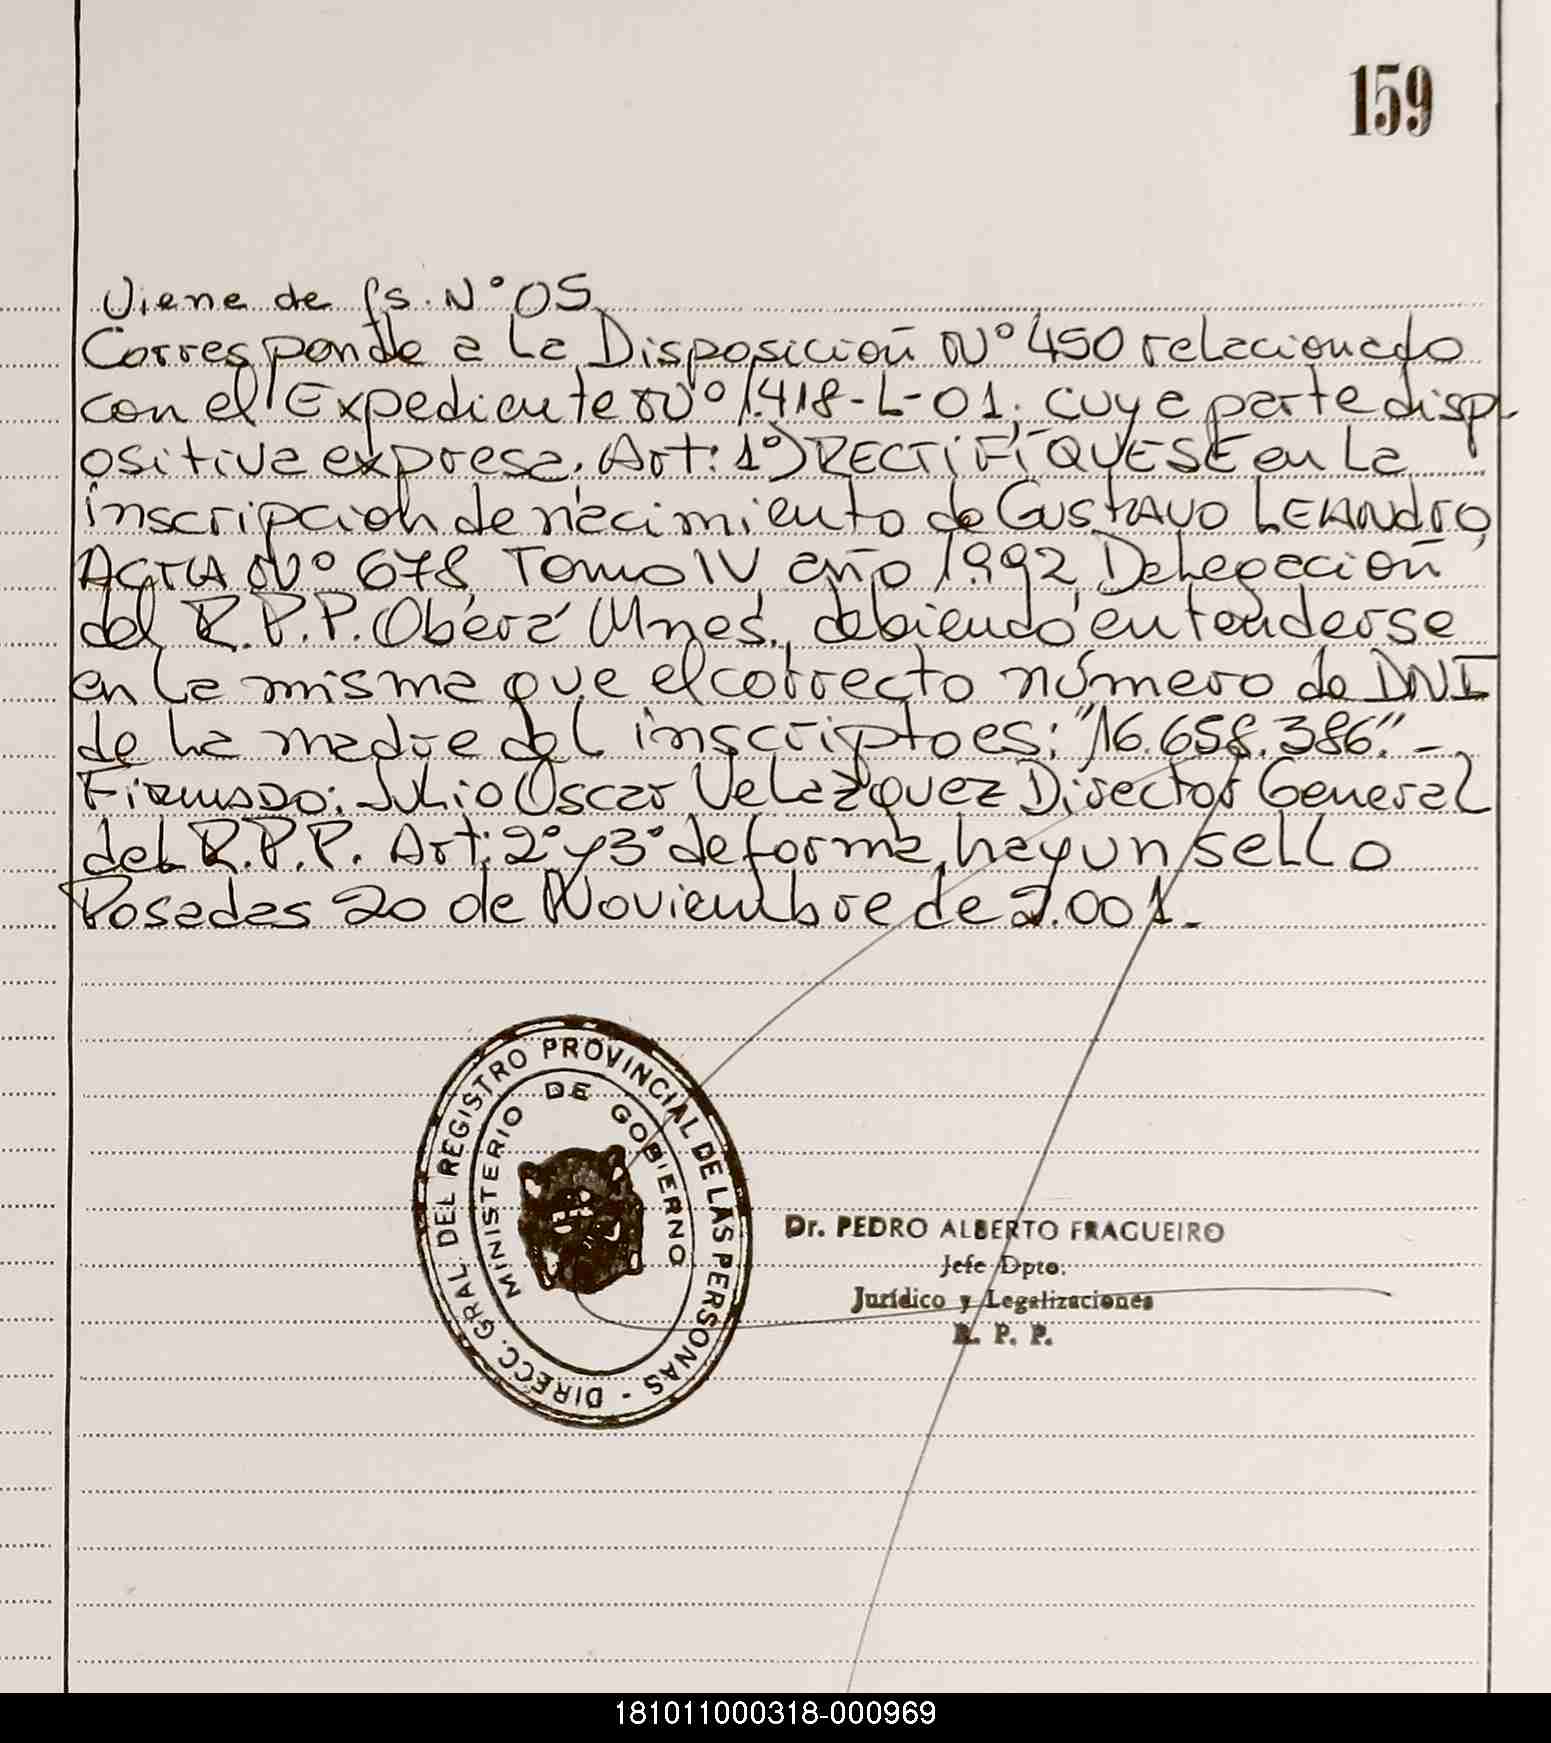 159
Viene de fs. N° 05
Corresponde a la Disposición N° 450 relacionado
con el Expediente N° 1.418-L-01. cuya parte disp
ositiva expresa. Art: 1°) RECTIFÍQUESE en la
inscripción de nacimiento de Gustavo LEANdro,
ACTA N° 678, Tomo IV, año 1.992, Delegación
del R.P.P. Oberá Mnes., debiendo entenderse
en la misma que el correcto número de DNI
de la madre del inscripto es: "16.658.386." -
Firmado: Julio Oscar Velazquez Director General
del R.P.P. Art: 2° y 3° de forma, hay un sello
Posadas 20 de Noviembre de 2.001.-
DIRECC. GRAL. DEL REGISTRO PROVINCIAL DE LAS PERSONAS -
MINISTERIO DE GOBIERNO
Dr. PEDRO ALBERTO FRAGUEIRO
Jefe Dpto.
Jurídico y Legalizaciones
R. P. P.
181011000318-000969